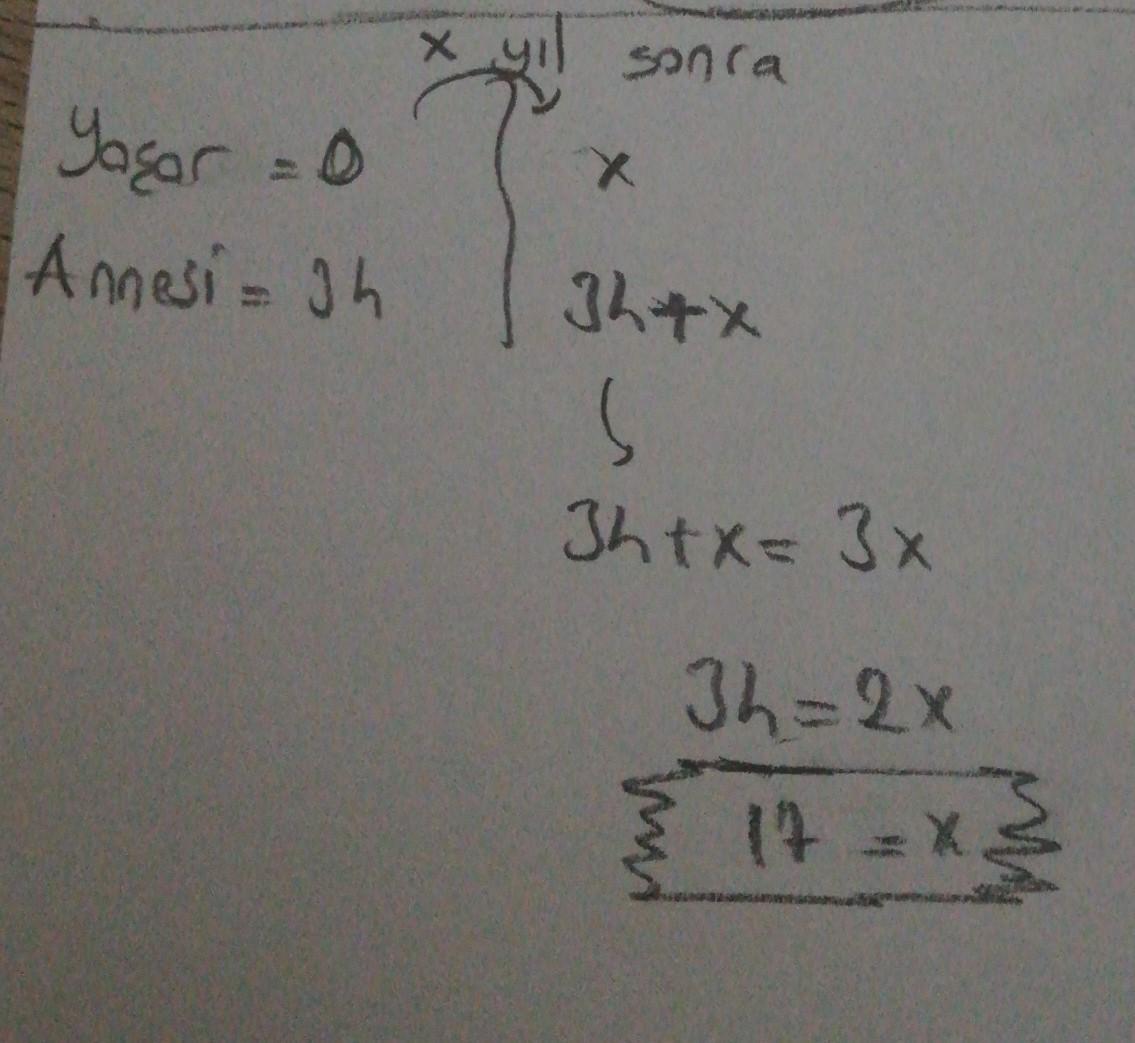 x yıl sonra
Yaşar = 0 x
Annesi = 34 34+x
34+x= 3x
34=2x
17 = x